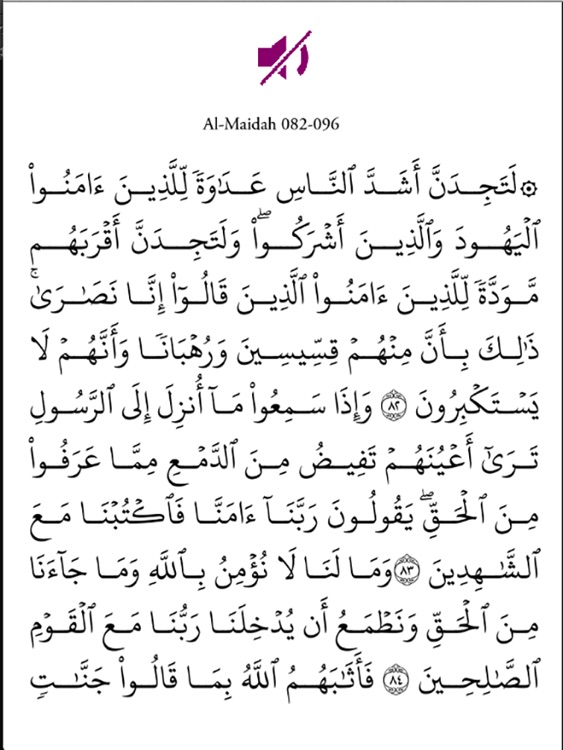 Al-Maidah 082-096
۞ لَتَجِدَنَّ أَشَدَّ ٱلنَّاسِ عَدَٰوَةٗ لِّلَّذِينَ ءَامَنُواْ
ٱلۡيَهُودَ وَٱلَّذِينَ أَشۡرَكُواْۖ وَلَتَجِدَنَّ أَقۡرَبَهُم
مَّوَدَّةٗ لِّلَّذِينَ ءَامَنُواْ ٱلَّذِينَ قَالُوٓاْ إِنَّا نَصَٰرَىٰۚ
ذَٰلِكَ بِأَنَّ مِنۡهُمۡ قِسِّيسِينَ وَرُهۡبَانٗا وَأَنَّهُمۡ لَا
يَسۡتَكۡبِرُونَ ٨٢ وَإِذَا سَمِعُواْ مَآ أُنزِلَ إِلَى ٱلرَّسُولِ
تَرَىٰٓ أَعۡيُنَهُمۡ تَفِيضُ مِنَ ٱلدَّمۡعِ مِمَّا عَرَفُواْ
مِنَ ٱلۡحَقِّۖ يَقُولُونَ رَبَّنَآ ءَامَنَّا فَٱكۡتُبۡنَا مَعَ
ٱلشَّٰهِدِينَ ٨٣ وَمَا لَنَا لَا نُؤۡمِنُ بِٱللَّهِ وَمَا جَآءَنَا
مِنَ ٱلۡحَقِّ وَنَطۡمَعُ أَن يُدۡخِلَنَا رَبُّنَا مَعَ ٱلۡقَوۡمِ
ٱلصَّٰلِحِينَ ٨٤ فَأَثَٰبَهُمُ ٱللَّهُ بِمَا قَالُواْ جَنَّٰتٖ